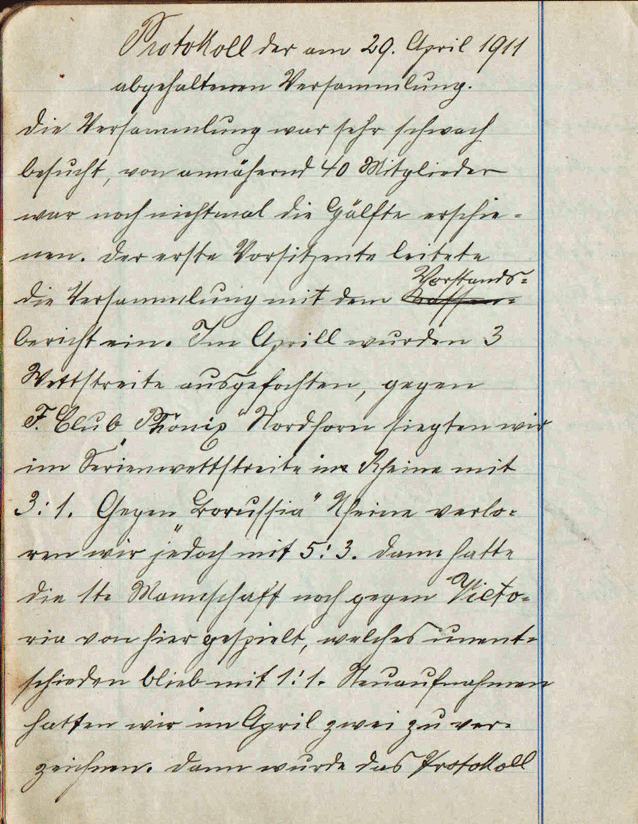 Protokoll der am 29. April 1911
abgehaltenen Versammlung.
Die Versammlung war sehr schwach
besucht, von annähernd 40 Mitglieder
war noch nichtmal die Hälfte erschie-
nen. Der erste Vorsitzente leitete
Vorstands-
die Versammlung mit dem
bericht ein. Im Aprill wurden 3
Wettstreite ausgefochten, gegen
F. Club Phönix" Nordhorn siegten wir
im Serienwettstreite in Rheine mit
3:1. Gegen Borussia" Rheine verlo-
ren wir jedoch mit 5:3. Dann hatte
die 1te Mannschaft noch gegen Victo-
ria von hier gespielt, welches unent-
schieden blieb mit 1:1. Neuaufnahmen
hatten wir im April zwei zu ver-
zeichnen. Dann wurde das Protokoll